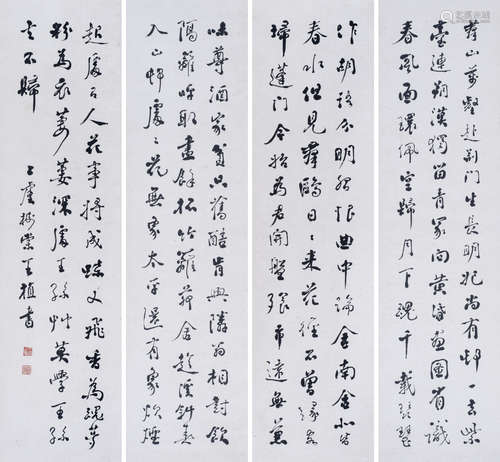 群山萬壑赴荊門生長明妃尚有邨一去紫
臺連朔漠獨留青冢向黃昏畫圖省識
春風面環佩空歸月下魂千載琵琶
作胡語分明怨恨曲中論舍南舍北皆
春水但見群鷗日日來花徑不曾緣客
掃蓬門今始為君開盤飧市遠無兼
味尊酒家貧只舊醅肯與隣翁相對飲
隔籬呼取盡餘杯竹籬茅舍趁溪斜春
入山邨處處花無象太平還有象炊煙
起處人花事將成蝶又飛香為魂夢
粉為衣萋萋深處王孫艸莫學王孫
去不歸
上虞王植書